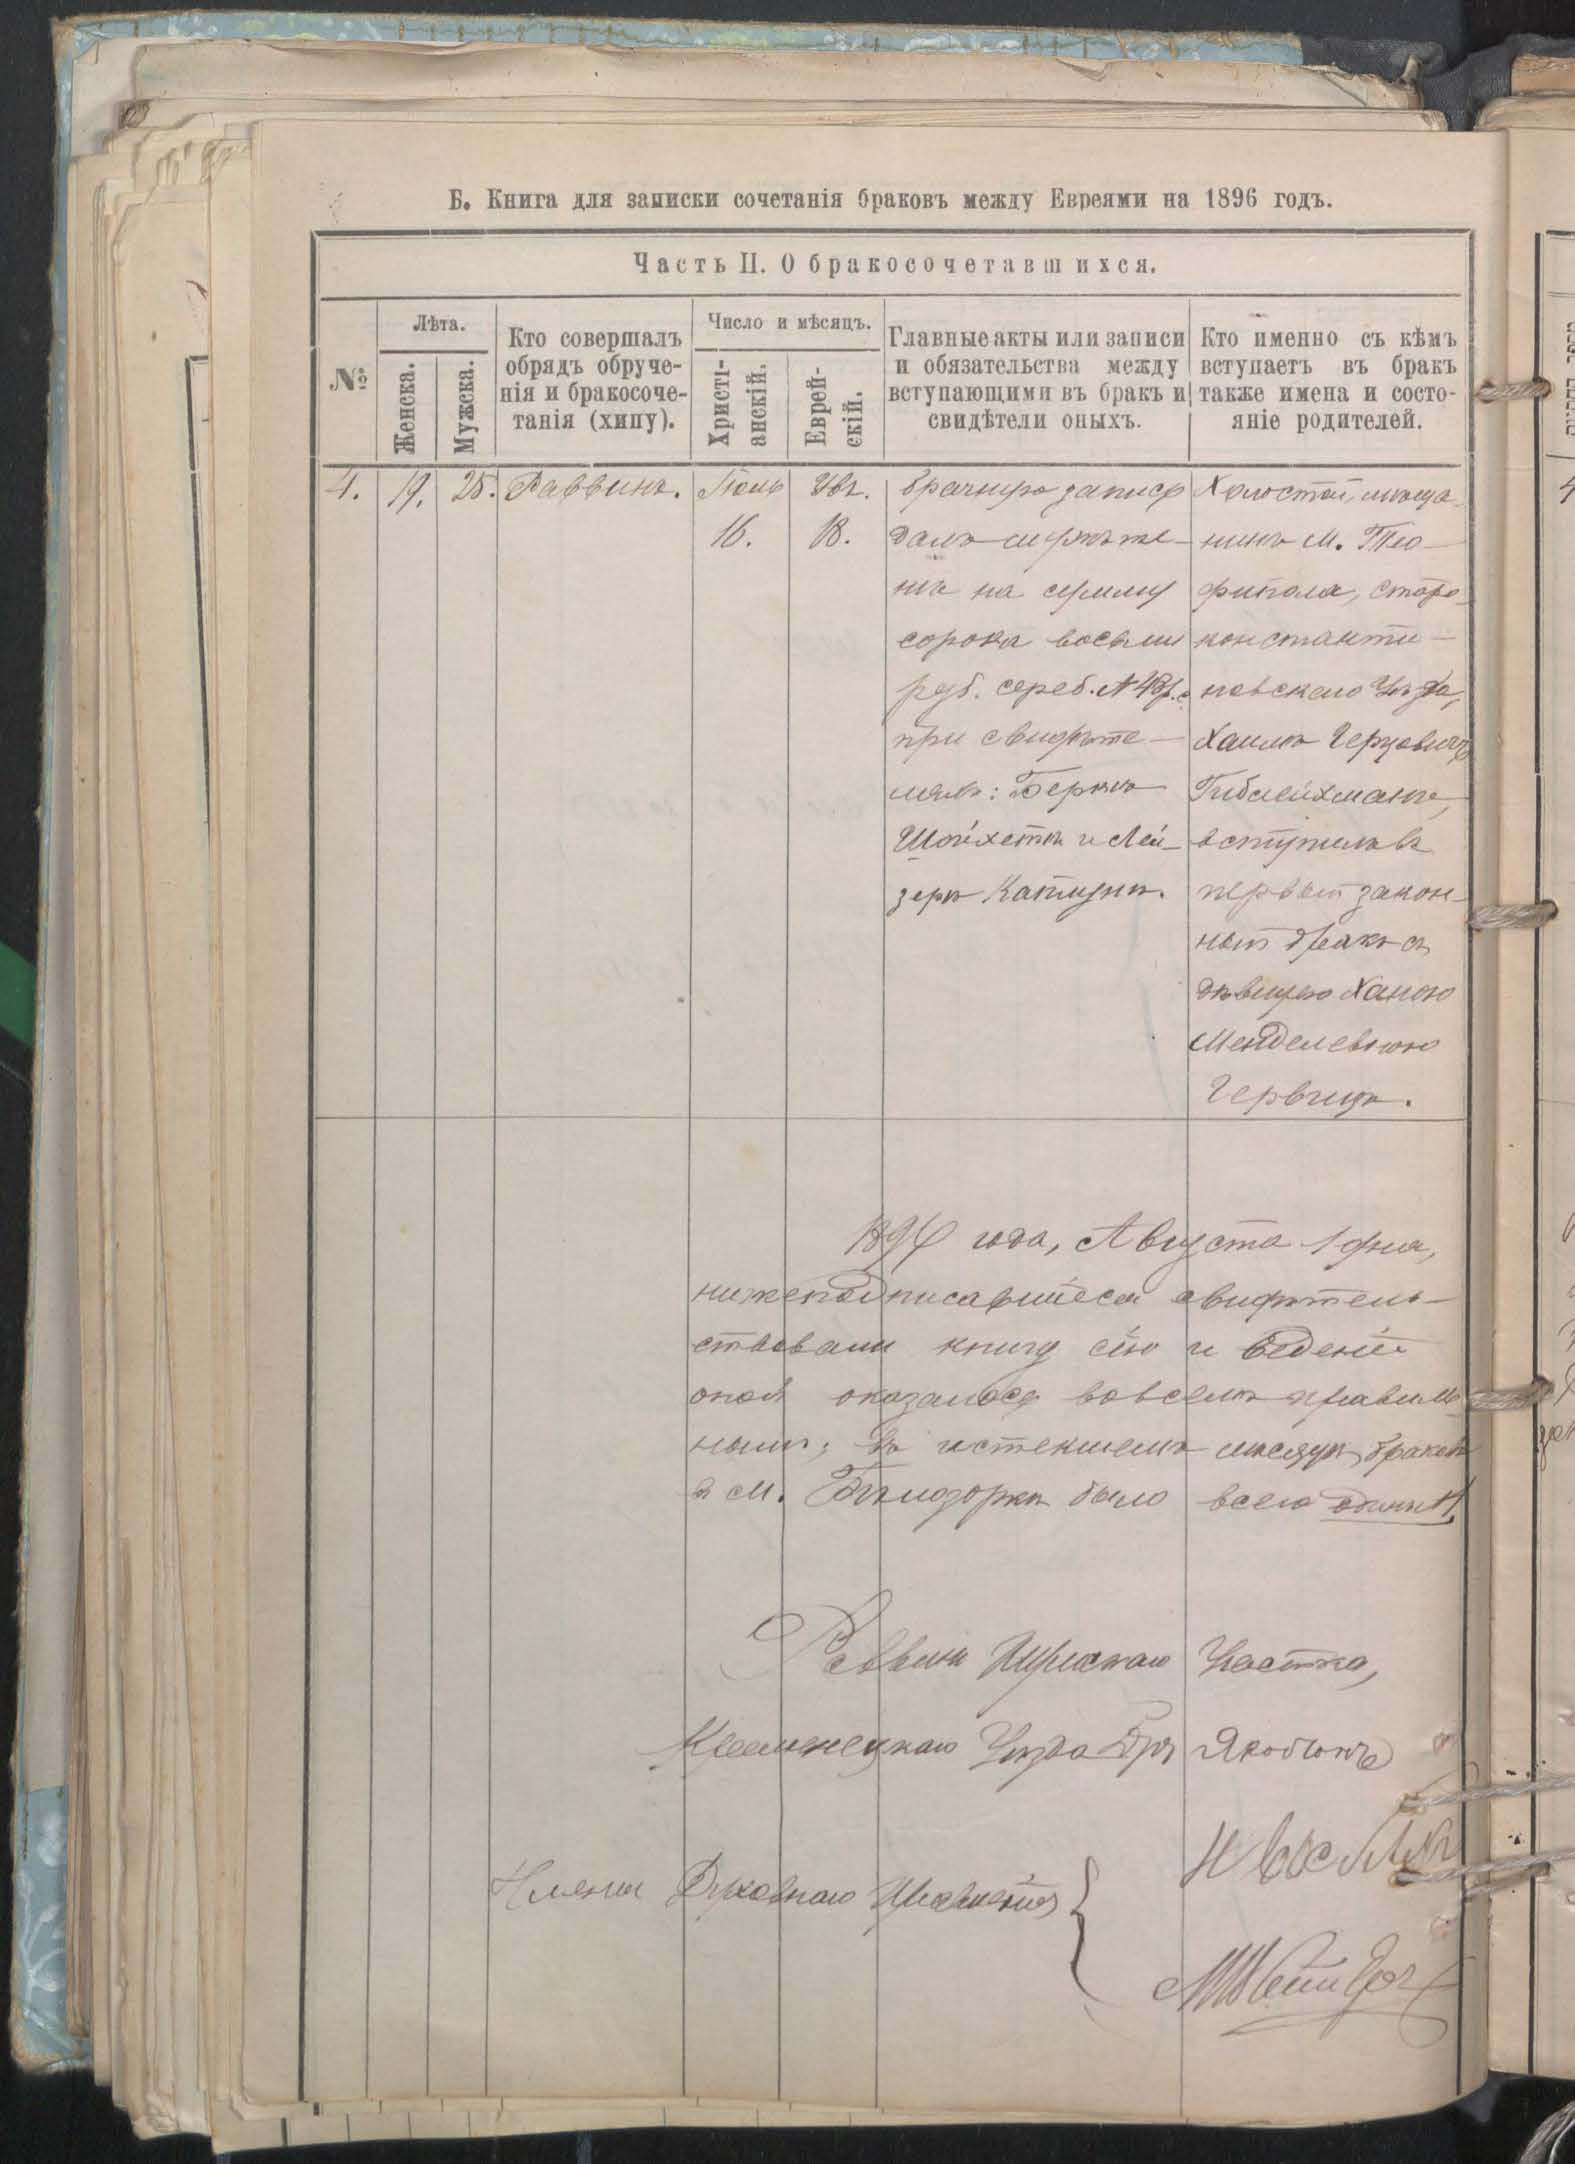 Б. Книга для записки сочетанія браковъ между Евреями на 1896 годъ.
Часть II. О бракосочетавшихся.
№
Лѣта.
Женска.
Мужска.
Кто совершалъ
обрядъ обруче-
нія и бракосоче-
танія (хипу).
Число и мѣсяцъ.
Христі-
анскій.
Еврей-
скій.
Главные акты или записи
и обязательства между
вступающими въ бракъ и
свидѣтели оныхъ.
Кто именно съ кѣмъ
вступаетъ въ бракъ
также имена и состо-
яніе родителей.
4.
19.
25.
Раввинъ.
Іюль
16.
Увъ.
18.
брачную запись
далъ
на сумму
сорока восьми
руб. сереб. 48 р. с.
при свидѣте-
ляхъ: Беркъ
Шойхетъ и Лей-
зеръ Каплунъ.
Холостой, мѣща-
нинъ м. Тео-
фиполя, Старо-
константи-
новскаго Уѣзда,
Хаимъ Герцовичъ
Гибслейхманъ,
вступилъ въ
первый закон-
ный бракъ съ
дѣвицею Ханою
Менделевною
1896 года, Августа 1 дня,
нижеподписавшіеся свидѣтель-
ствовали книгу сію и веденіе
оной оказалось во всемъ правиль-
нымъ; въ истекшемъ мѣсяцѣ браковъ
въ м. Бѣлозоркѣ было всего одинъ 1.
Раввинъ Участка,
Кременецкаго Уѣзда Якобсонъ
Члены Духовнаго Правленія